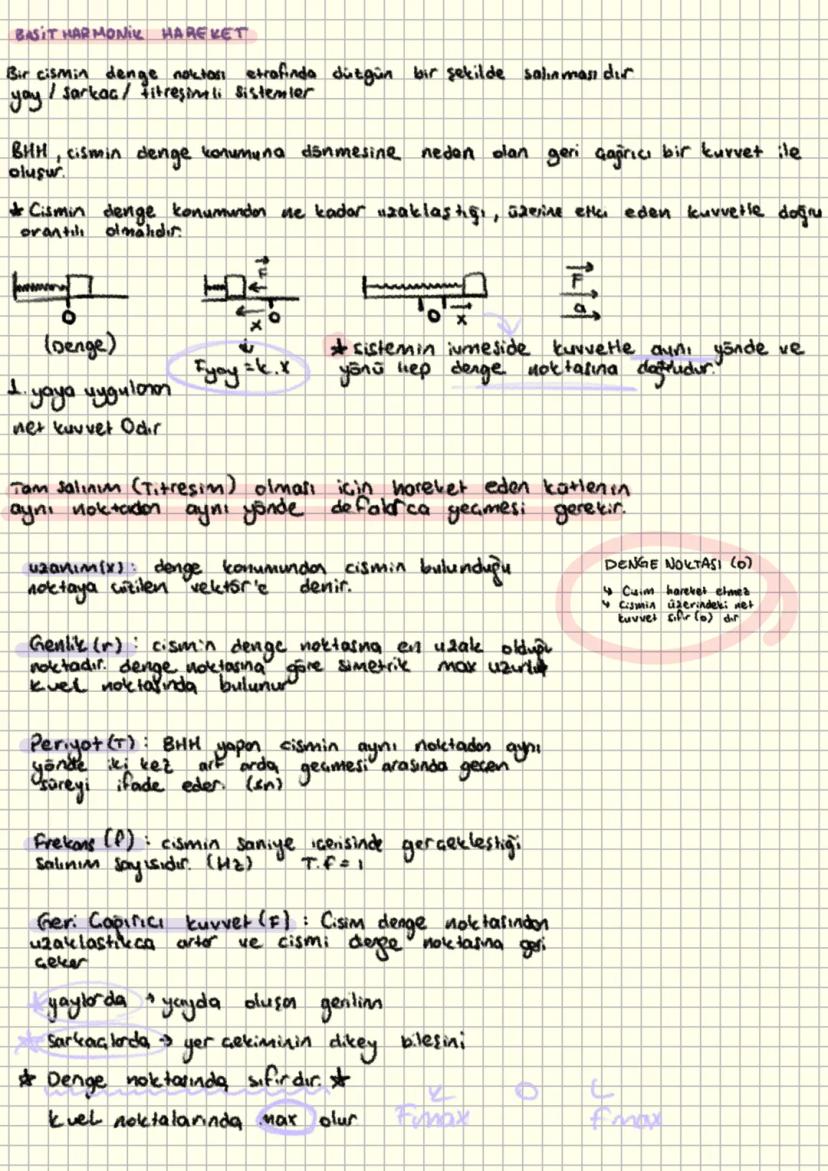 BASİT HARMONİK HAREKET
Bir cismin denge noktası etrafında düzgün bir şekilde salınmasıdır
yay / sarkaç / titreşimli sistemler
BHH, cismin denge konumuna dönmesine neden olan geri çağırıcı bir kuvvet ile
oluşur.
★ Cismin denge konumundan ne kadar uzaklaştığı, üzerine etki eden kuvvetle doğru
orantılı olmalıdır.
F
F
a
O
x
O
O
x
(Denge)
Fyay = k.x
★ sistemin ivmeside kuvvetle aynı yönde ve
yönü hep denge noktasına doğrudur.
1. yaya uygulanan
net kuvvet 0dır
Tam salınım (Titreşim) olması için hareket eden kütlenin
aynı noktadan aynı yönde defalarca geçmesi gerekir.
uzanım(x): denge konumundan cismin bulunduğu
noktaya çizilen vektör'e denir.
DENGE NOKTASI (O)
↳ Cisim hareket etmez
↳ Cismin üzerindeki net
kuvvet sıfır (0) dır
Genlik (r): cismin denge noktasına en uzak olduğu
noktadır. denge noktasına göre simetrik max
kuel noktasında bulunur
Periyot (T): BHH yapan cismin aynı noktadan aynı
yönde iki kez art arda geçmesi arasında geçen
süreyi ifade eder. (sn)
Frekans (f): cismin saniye içerisinde gerçekleştiği
salınım sayısıdır. (Hz) T.f = 1
Geri Çağırıcı kuvvet (F): Cisim denge noktasından
uzaklastıkca artar ve cismi denge noktasına geri
çeker
★ yaylarda → yayda oluşan gerilim
★ sarkaçlarda → yer çekiminin dikey bileşini
★ Denge noktasında sıfırdır. ★
kuel noktalarında max olur Fmax O fmax